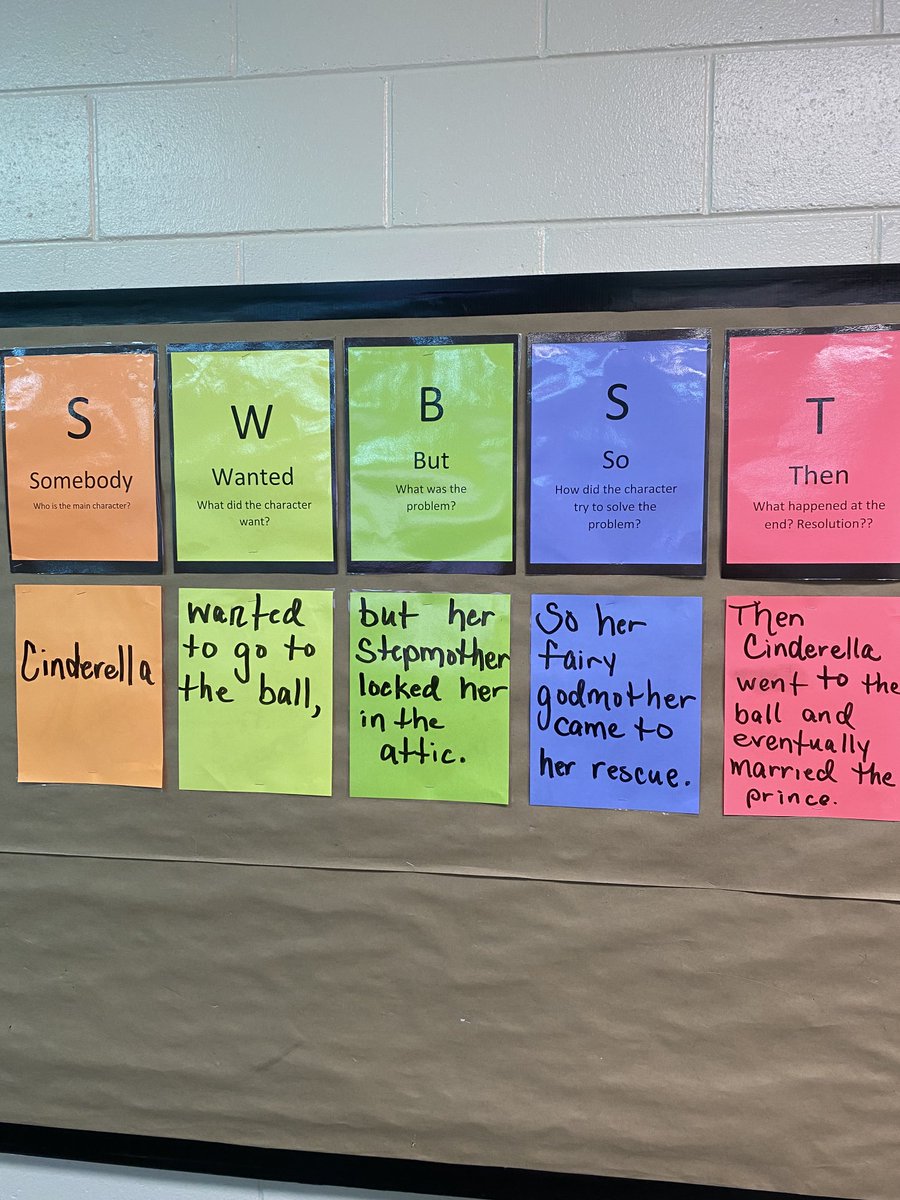 S
Somebody
Who is the main character?
W
Wanted
What did the character
want?
B
But
What was the
problem?
S
So
How did the character
try to solve the
problem?
T
Then
What happened at the
end? Resolution??
Cinderella
wanted
to go to
the ball,
but her
Stepmother
locked her
in the
attic.
So her
fairy
godmother
came to
her rescue.
Then
Cinderella
went to the
ball and
eventually
married the
prince.